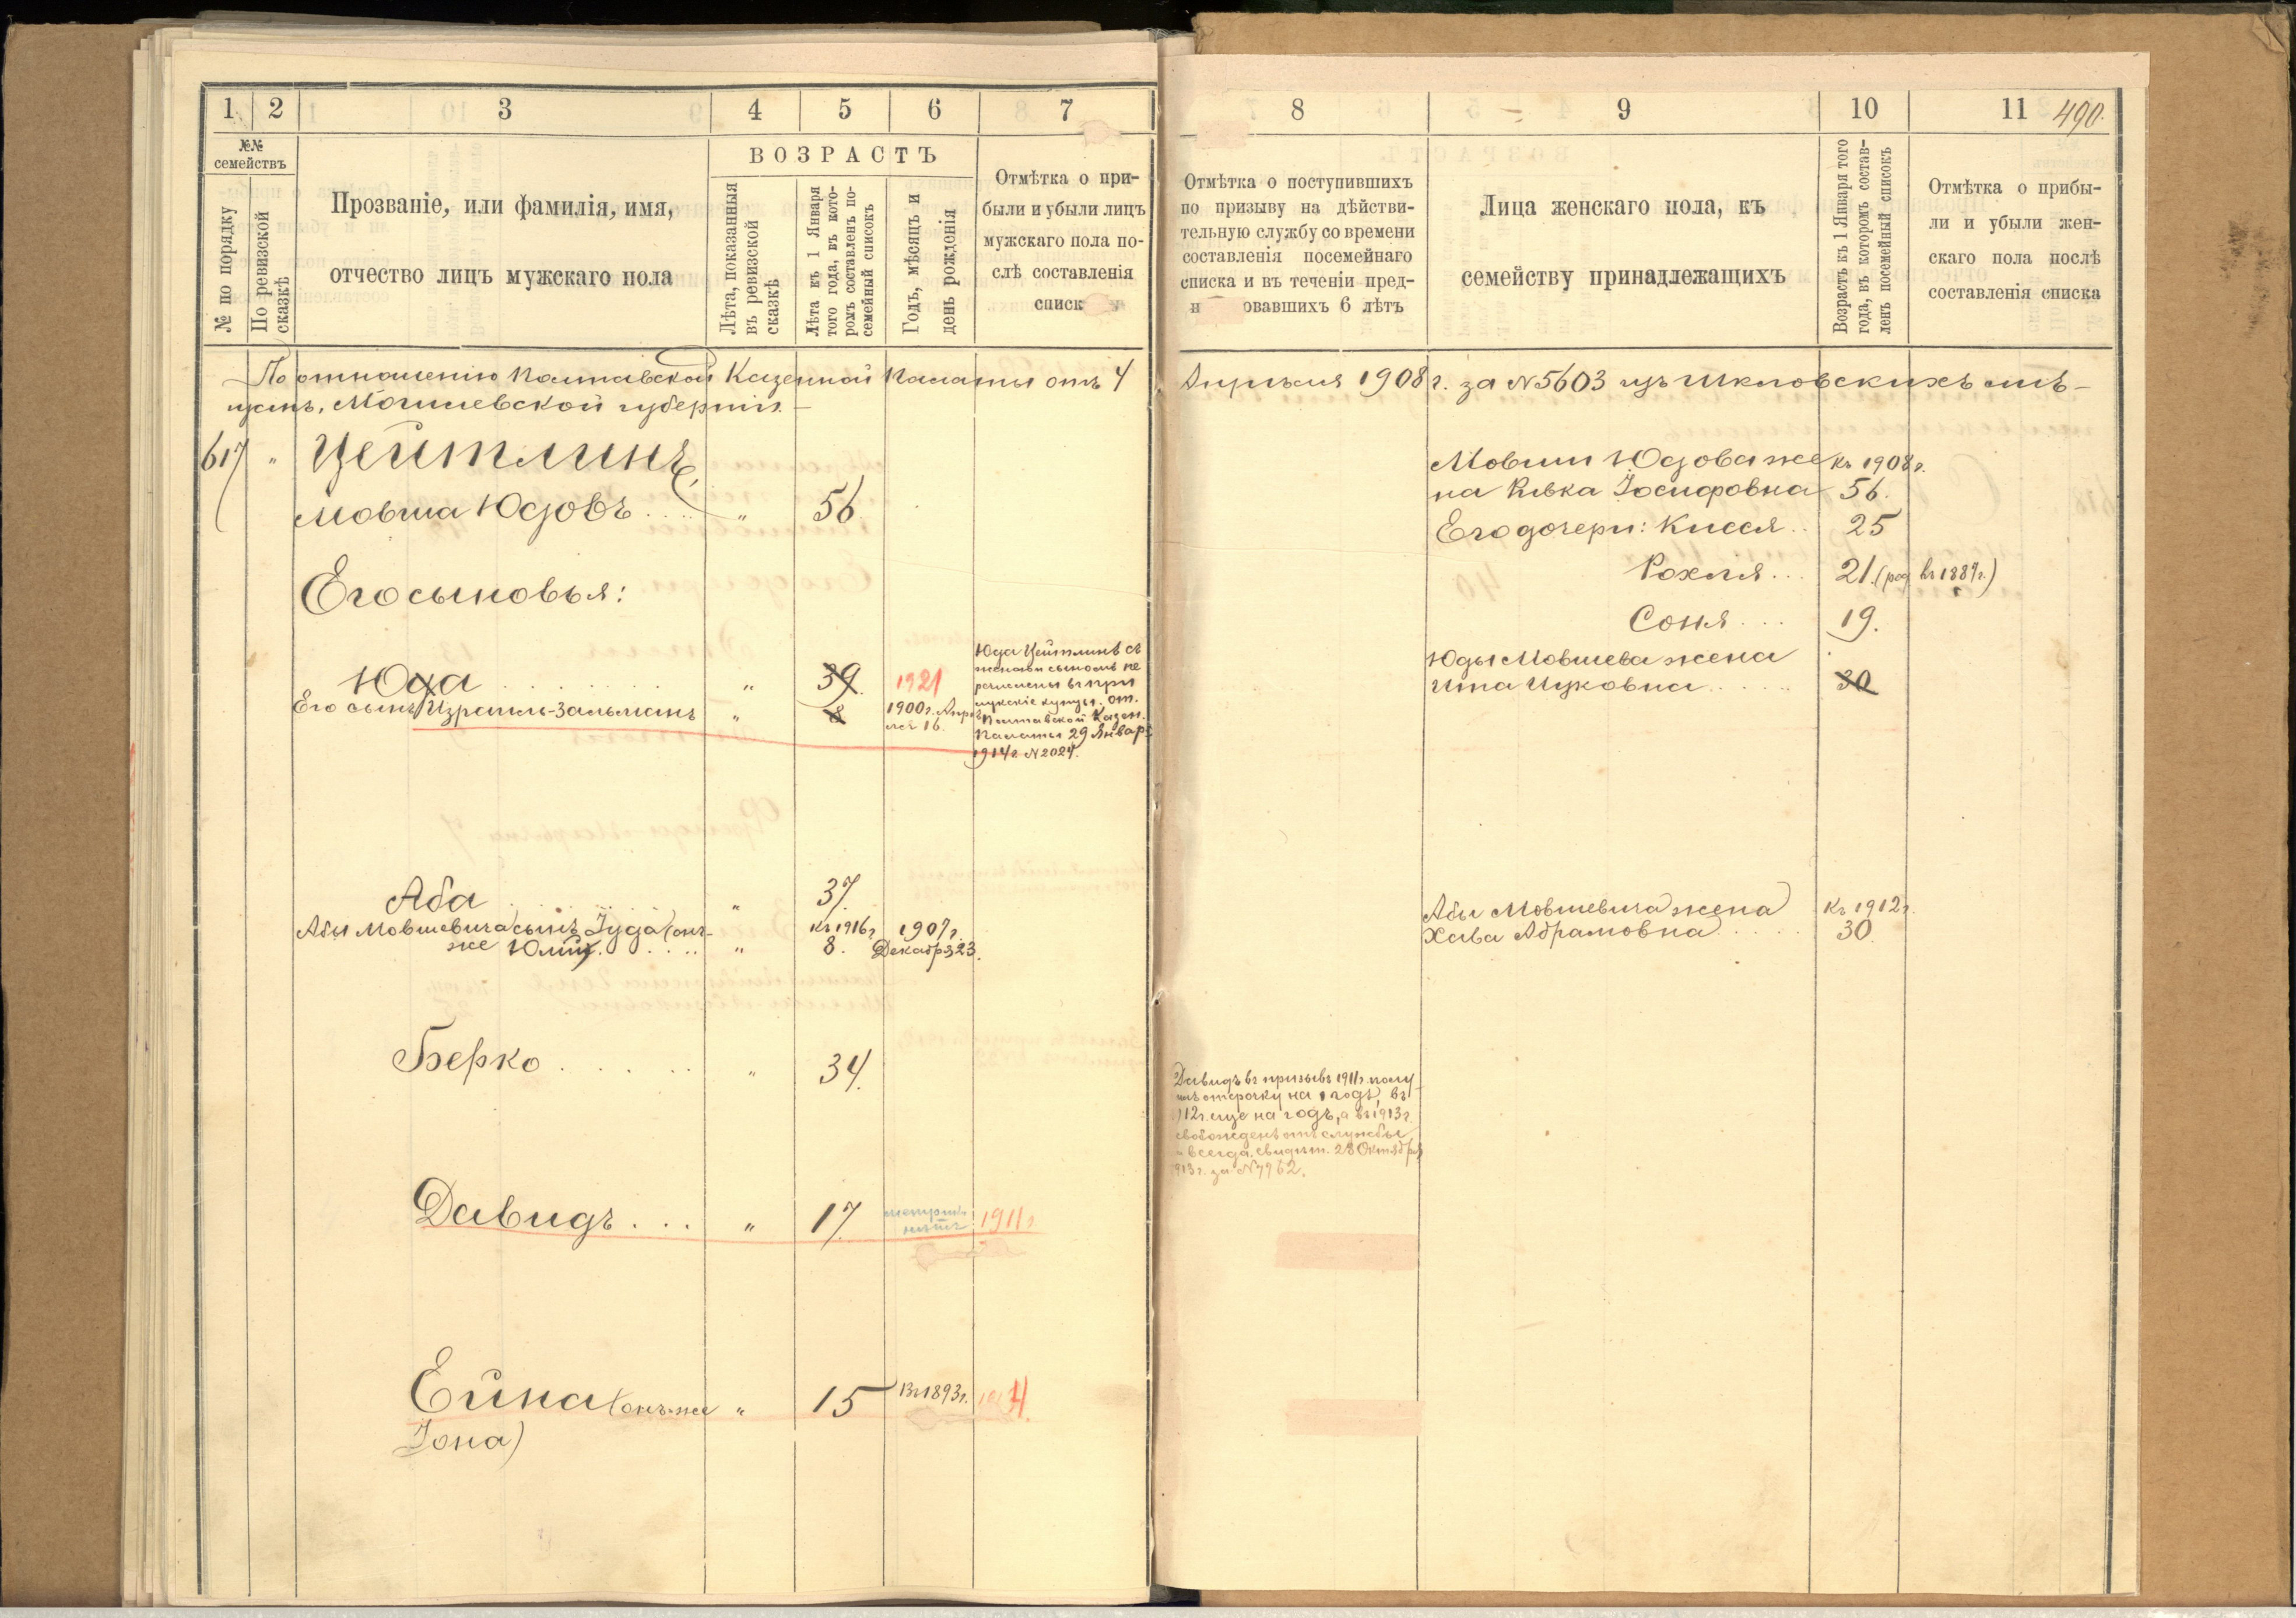 1 2 3 4 5 6 7
№№ семействъ
№ по порядку
По ревизской сказкѣ
Прозваніе, или фамилія, имя,
отчество лицъ мужскаго пола
ВОЗРАСТЪ
Лѣта, показанныя
въ ревизской
сказкѣ
Лѣта къ 1 Января
того года, въ кото-
ромъ составленъ по-
семейный списокъ
Годъ, мѣсяцъ и
день рожденія
Отмѣтка о при-
были и убыли лицъ
мужскаго пола по-
слѣ составленія
списк
По отношенію Полтавской Казенной Палаты отъ 4
щанъ, Могилевской губерніи.
617 " Цейтлинъ
Мовша Юдовъ.... " 56
Его сыновья:
Юда " 39. 1921
Его сынъ Израиль-Зальманъ " 8 1900 г. Апрѣ-
ля 16.
Юда Цейтлинъ съ
женой и сыномъ пе
речислены въ при
лукскіе купцы. от.
Полтавской Казен.
Палаты 29 Январ
1914 г. N 2024.
Аба " 37.
Абы Мовшевича сынъ Іуда (онъ- къ 1916 г 1907 г.
же Юлій) " 8. Декабря 23.
Берко " 34.
Давидъ... " 17. 1911 г
Ейна (онъ-же " 15 Въ 1893 г.
Іона)
8 9 10 11 490.
Отмѣтка о поступившихъ
по призыву на дѣйстви-
тельную службу со времени
составленія посемейнаго
списка и въ теченіи пред-
и овавшихъ 6 лѣтъ
Лица женскаго пола, къ
семейству принадлежащихъ
Возрастъ къ 1 Января того
года, въ которомъ состав-
ленъ посемейный списокъ
Отмѣтка о прибы-
ли и убыли жен-
скаго пола послѣ
составленія списка
Апрѣля 1908 г. за N 5603 изъ Шкловскихъ мѣ-
Мовши Юдова же къ 1908 г.
на Ривка Іосифовна 56.
Его дочери: Кисся.. 25
Рохля... 21. (род. въ 1887 г.)
Соня.... 19.
Юды Мовшева жена
Ита Ицковна..... 30
Абы Мовшевича жена къ 1912 г.
Хава Абрамовна..... 30.
Давидъ въ призывъ 1911 г. полу
илъ отсрочку на 1 годъ, въ
12 г. еще на годъ, а въ 1913 г.
свобожденъ отъ службы
всегда. свидѣт. 28 Октября
913 г. за N 7962.